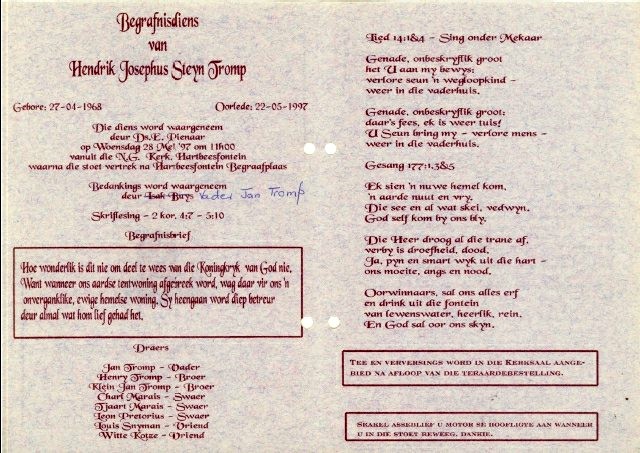 Begrafnisdiens
van
Hendrik Josephus Steyn Tromp
Gebore: 27-04-1968 Oorlede: 22-05-1997
Die diens word waargeneem
deur Ds.E. Pienaar
op Woensdag 28 Mei '97 om 11h00
vanuit die N.G. Kerk, Hartbeesfontein
waarna die stoet vertrek na Hartbeesfontein Begraafplaas
Bedankings word waargeneem
deur Isak Buys Vader Jan Tromp
Skriflesing - 2 kor. 4:7 - 5:10
Begrafnisbrief
Hoe wonderlik is dit nie om deel te wees van die Koningkryk van God nie.
Want wanneer ons aardse tentwoning afgebreek word, wag daar vir ons 'n
onverganklike, ewige hemelse woning. Sy heengaan word diep betreur
deur almal wat hom lief gehad het.
Draers
Jan Tromp - Vader
Henry Tromp - Broer
Klein Jan Tromp - Broer
Charl Marais - Swaer
Tjaart Marais - Swaer
Leon Pretorius - Swaer
Louis Snyman - Vriend
Witte Kotze - Vriend
Lied 14:1&4 - Sing onder Mekaar
Genade, onbeskryflik groot
het U aan my bewys:
verlore seun 'n wegloopkind -
weer in die vaderhuis.
Genade, onbeskryflik groot:
daar's fees, ek is weer tuis!
U Seun bring my - verlore mens -
weer in die vaderhuis.
Gesang 177:1,3&5
Ek sien 'n nuwe hemel kom,
'n aarde nuut en vry.
Die see en al wat skei, vedwyn.
God self kom by ons bly.
Die Heer droog al die trane af,
verby is droefheid, dood.
Ja, pyn en smart wyk uit die hart -
ons moeite, angs en nood.
Oorwinnaars, sal ons alles erf
en drink uit die fontein
van lewenswater, heerlik, rein.
En God sal oor ons skyn.
TEE EN VERVERSINGS WORD IN DIE KERKSAAL AANGE-
BIED NA AFLOOP VAN DIE TERAARDEBESTELLING.
SKAKEL ASSEBLIEF U MOTOR SE HOOFLIGTE AAN WANNEER
U IN DIE STOET BEWEEG. DANKIE.